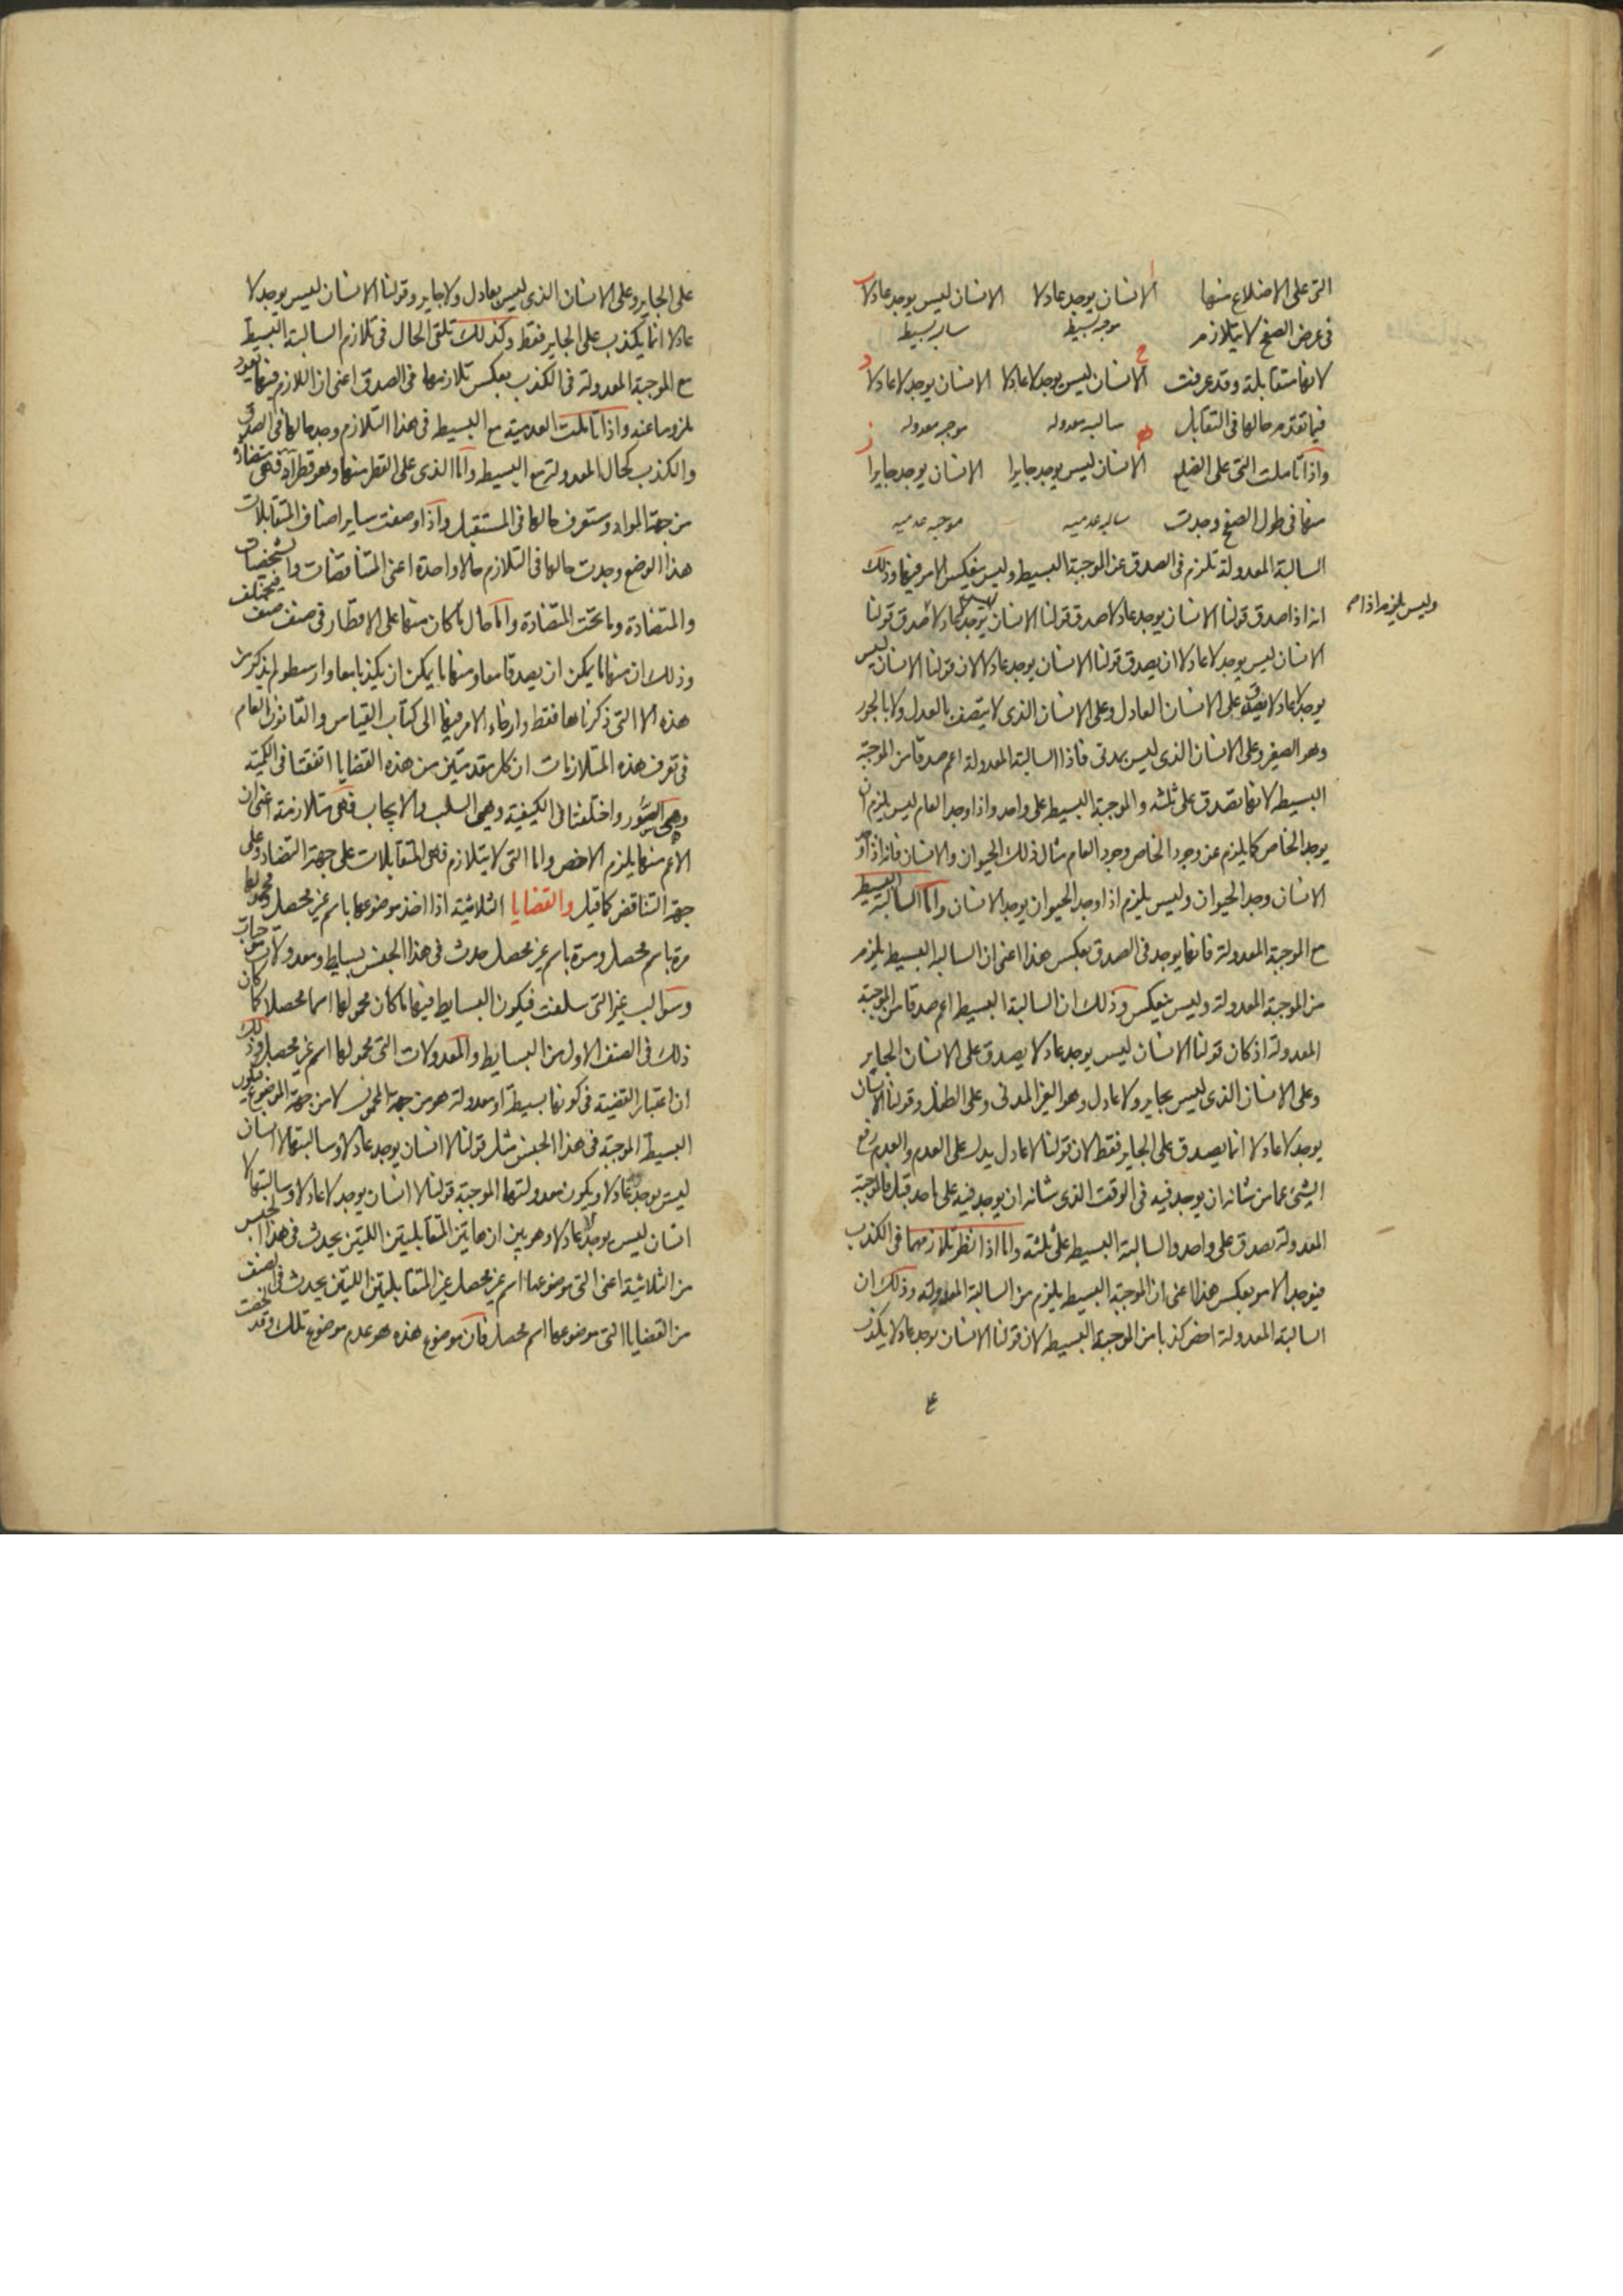 التى على الاضلاع منها الانسان يوجد عادلا الانسان ليس يوجد عادلا
فى عرض الصفح لا يتلازم موجبه بسيط سالبه بسيط
لانها متقابلة وقد عرفت الانسان ليس يوجد لا عادلا الانسان يوجد لا عادلا
فيما تقدم حالها فى التقابل سالبه معدوله موجبه معدوله
واذا تاملت التى على الضلع الانسان ليس يوجد جايرا الانسان يوجد جايرا
منها فى طول الصفح وجدت سالبه عدميه موجبه عدميه
السالبة المعدولة تلزم فى الصدق عن الموجبة البسيط وليس ينعكس الامر فيها وذلك
انه اذا صدق قولنا الانسان يوجد عادلا صدق قولنا الانسان ليس يوجد لا عادلا صدق قولنا
وليس يلزم اذا
الانسان ليس يوجد لا عادلا ان يصدق قولنا الانسان يوجد عادلا لان قولنا الانسان ليس
يوجد لا عادلا يصدق على الانسان العادل وعلى الانسان الذى لا يتصف بالعدل ولا بالجور
وهو الصغير وعلى الانسان الذى ليس بمدنى فاذا السالبة المعدولة اعم صدقا من الموجبة
البسيطه لانها تصدق على ثلثه والموجبة البسيط على واحد واذا وجد العام ليس يلزم ان
يوجد الخاص كما يلزم عن وجود الخاص وجود العام مثال ذلك الحيوان والانسان فانه اذا وجد
الانسان وجد الحيوان وليس يلزم اذا وجد الحيوان يوجد الانسان واما السالبة البسيط
مع الموجبة المعدولة فانها يوجد فى الصدق بعكس هذا اعنى ان السالبه البسيط يلزم
من الموجبة المعدولة وليس ينعكس وذلك ان السالبة البسيط اعم صدقا من الموجبة
المعدولة اذ كان قولنا الانسان ليس يوجد عادلا يصدق على الانسان الجاير
وعلى الانسان الذى ليس بجاير ولا عادل وهو الغير المدنى وعلى الطفل وقولنا الانسان
يوجد لا عادلا انما يصدق على الجاير فقط لان قولنا لا عادل يدل على العدم والعدم رفع
الشئ عما من شانه ان يوجد فيه فى الوقت الذى شانه ان يوجد فيه على ما حد قبل فالموجبة
المعدولة تصدق على واحد والسالبة البسيط على ثلثة واما اذا نظر تلازمهما فى الكذب
فيوجد الامر بعكس هذا اعنى ان الموجبة البسيط يلزم من السالبة المعدولة وذلك ان
السالبة المعدولة اخص كذبا من الموجبة البسيطه لان قولنا الانسان يوجد عادلا يكذب
على الجاير وعلى الانسان الذى ليس بعادل ولا جاير وقولنا الانسان ليس يوجد لا
عادلا انما يكذب على الجاير فقط وكذلك تلقى الحال فى تلازم السالبة البسيط
مع الموجبة المعدولة فى الكذب بعكس تلازمها فى الصدق اعنى ان اللازم فيها يعود
ملزوما عنه واذا تاملت العدمية مع البسيط فى هذا التلازم وجد حالها فى الصدق
والكذب كحال المعدولة مع البسيط واما الذى على القطر منها وهو قطر اد فهى متضادة
من جهة المواد وستعرف حالها فى المستقبل واذا وضعت ساير اصناف المتقابلات
هذا الوضع وجدت حالها فى التلازم حالا واحدة اعنى المتناقضات والشخصيات
والمتضادة وما تحت المتضادة واما حال ما كان منها على الاقطار فى صنف صنف فيختلف
وذلك ان منها ما يمكن ان يصدقا معا ومنها ما يمكن ان يكذبا معا وارسطو لم يذكر من
هذه الا التى ذكرناها فقط وارجاء الامر فيها الى كتاب القياس والقانون العام
فى تعرف هذه المتلازمات ان كل مقدمتين من هذه القضايا اتفقتا فى الكمية
وهى السور واختلفتا فى الكيفية وهى السلب والايجاب فهى متلازمة اعنى ان
الاعم منها يلزم الاخص واما التى لا يتلازم فهى المتقابلات على جهة التضاد وعلى
جهة التناقض كما قيل والقضايا الثلاثية اذا اخذ موضوعها باسم غير محصل ومحمولها
مرة باسم محصل ومرة باسم غير محصل حدث فى هذا الجنس بسايط ومعدولات موجبات
وسوالب غير التى سلفت فيكون البسايط فيها ما كان محمولها اسما محصلا كما كان
ذلك فى الصنف الاول من البسايط والمعدولات التى محمولها اسم غير محصل وذلك
ان اعتبار القضية فى كونها بسيطة او معدولة هو من جهة المحمول لا من جهة الموضوع فيكون
البسيط الموجبة فى هذا الجنس مثل قولنا لا انسان يوجد عادلا وسالبتها لا انسان
ليس يوجد عادلا ويكون معدولتها الموجبة قولنا لا انسان يوجد لا عادلا وسالبتها لا
انسان ليس يوجد لا عادلا وهو بين ان هاتين المتقابلتين اللتين يحدث فى هذا الجنس
من الثلاثية اعنى التى موضوعها اسم غير محصل غير المتقابلتين اللتين يحدث فى الصنف
من القضايا التى موضوعها اسم محصل فان موضوع هذه هو عدم موضوع تلك وقد